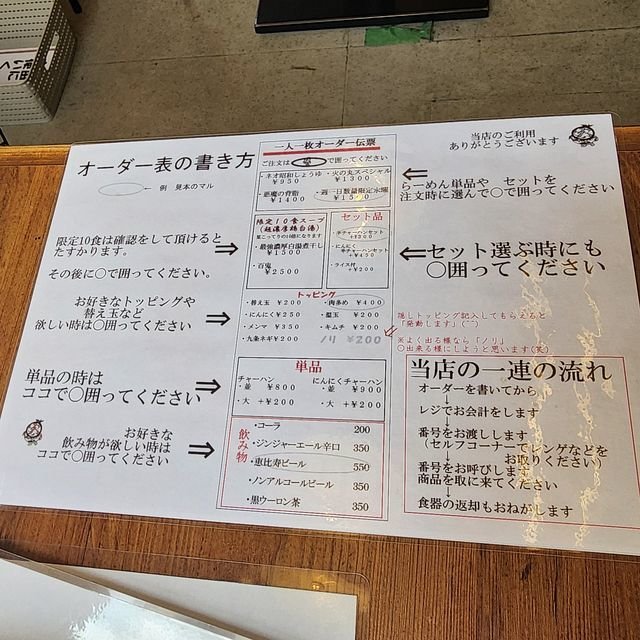 オーダー表の書き方
←例 見本のマル
当店のご利用
ありがとうございます
一人一枚オーダー伝票
ご注文は
で囲ってください
・ネオ昭和しょうゆ
¥950
・火の丸スペシャル
¥1300
・悪魔の背脂
¥1400
・週一日数量限定水曜
¥1500
⇐
らーめん単品や セットを
注文時に選んで〇で囲ってください
限定10食は確認をして頂けると
たすかります。
その後に〇で囲ってください。
⇒
限定10食スープ
(超濃厚鶏白湯)
・最強濃厚白湯煮干し
¥1500
・百鬼
¥2500
セット品
・半チャーハンセット
+¥300
・にんにく
半チャーハンセット
+¥450
・ライス付
+¥200
⇐セット選ぶ時にも
〇囲ってください
お好きなトッピングや
替え玉など
欲しい時は〇囲ってください
⇒
トッピング
・替え玉 ¥200
・肉多め ¥400
・にんにく ¥250
・温玉 ¥200
・メンマ ¥350
・キムチ ¥200
・九条ネギ ¥200
ノリ ¥200
隠しトッピング記入してもらえると
「発動します」(^^)
※よく出る様なら「ノリ」
〇出来る様にしようと思います(笑)
単品の時は
ココで〇囲ってください
⇒
単品
チャーハン
・並 ¥800
・大 +¥200
にんにくチャーハン
・並 ¥900
・大 +¥200
お好きな
飲み物が欲しい時は
ココで〇囲ってください
⇒
飲み物
・コーラ 200
・ジンジャーエール辛口 350
・恵比寿ビール 550
・ノンアルコールビール 350
・黒ウーロン茶 350
当店の一連の流れ
オーダーを書いてから
↓
レジでお会計をします
↓
番号をお渡しします
(セルフコーナーでレンゲなどを
お取りください)
番号をお呼びします
商品を取に来てください
↓
食器の返却もおねがします